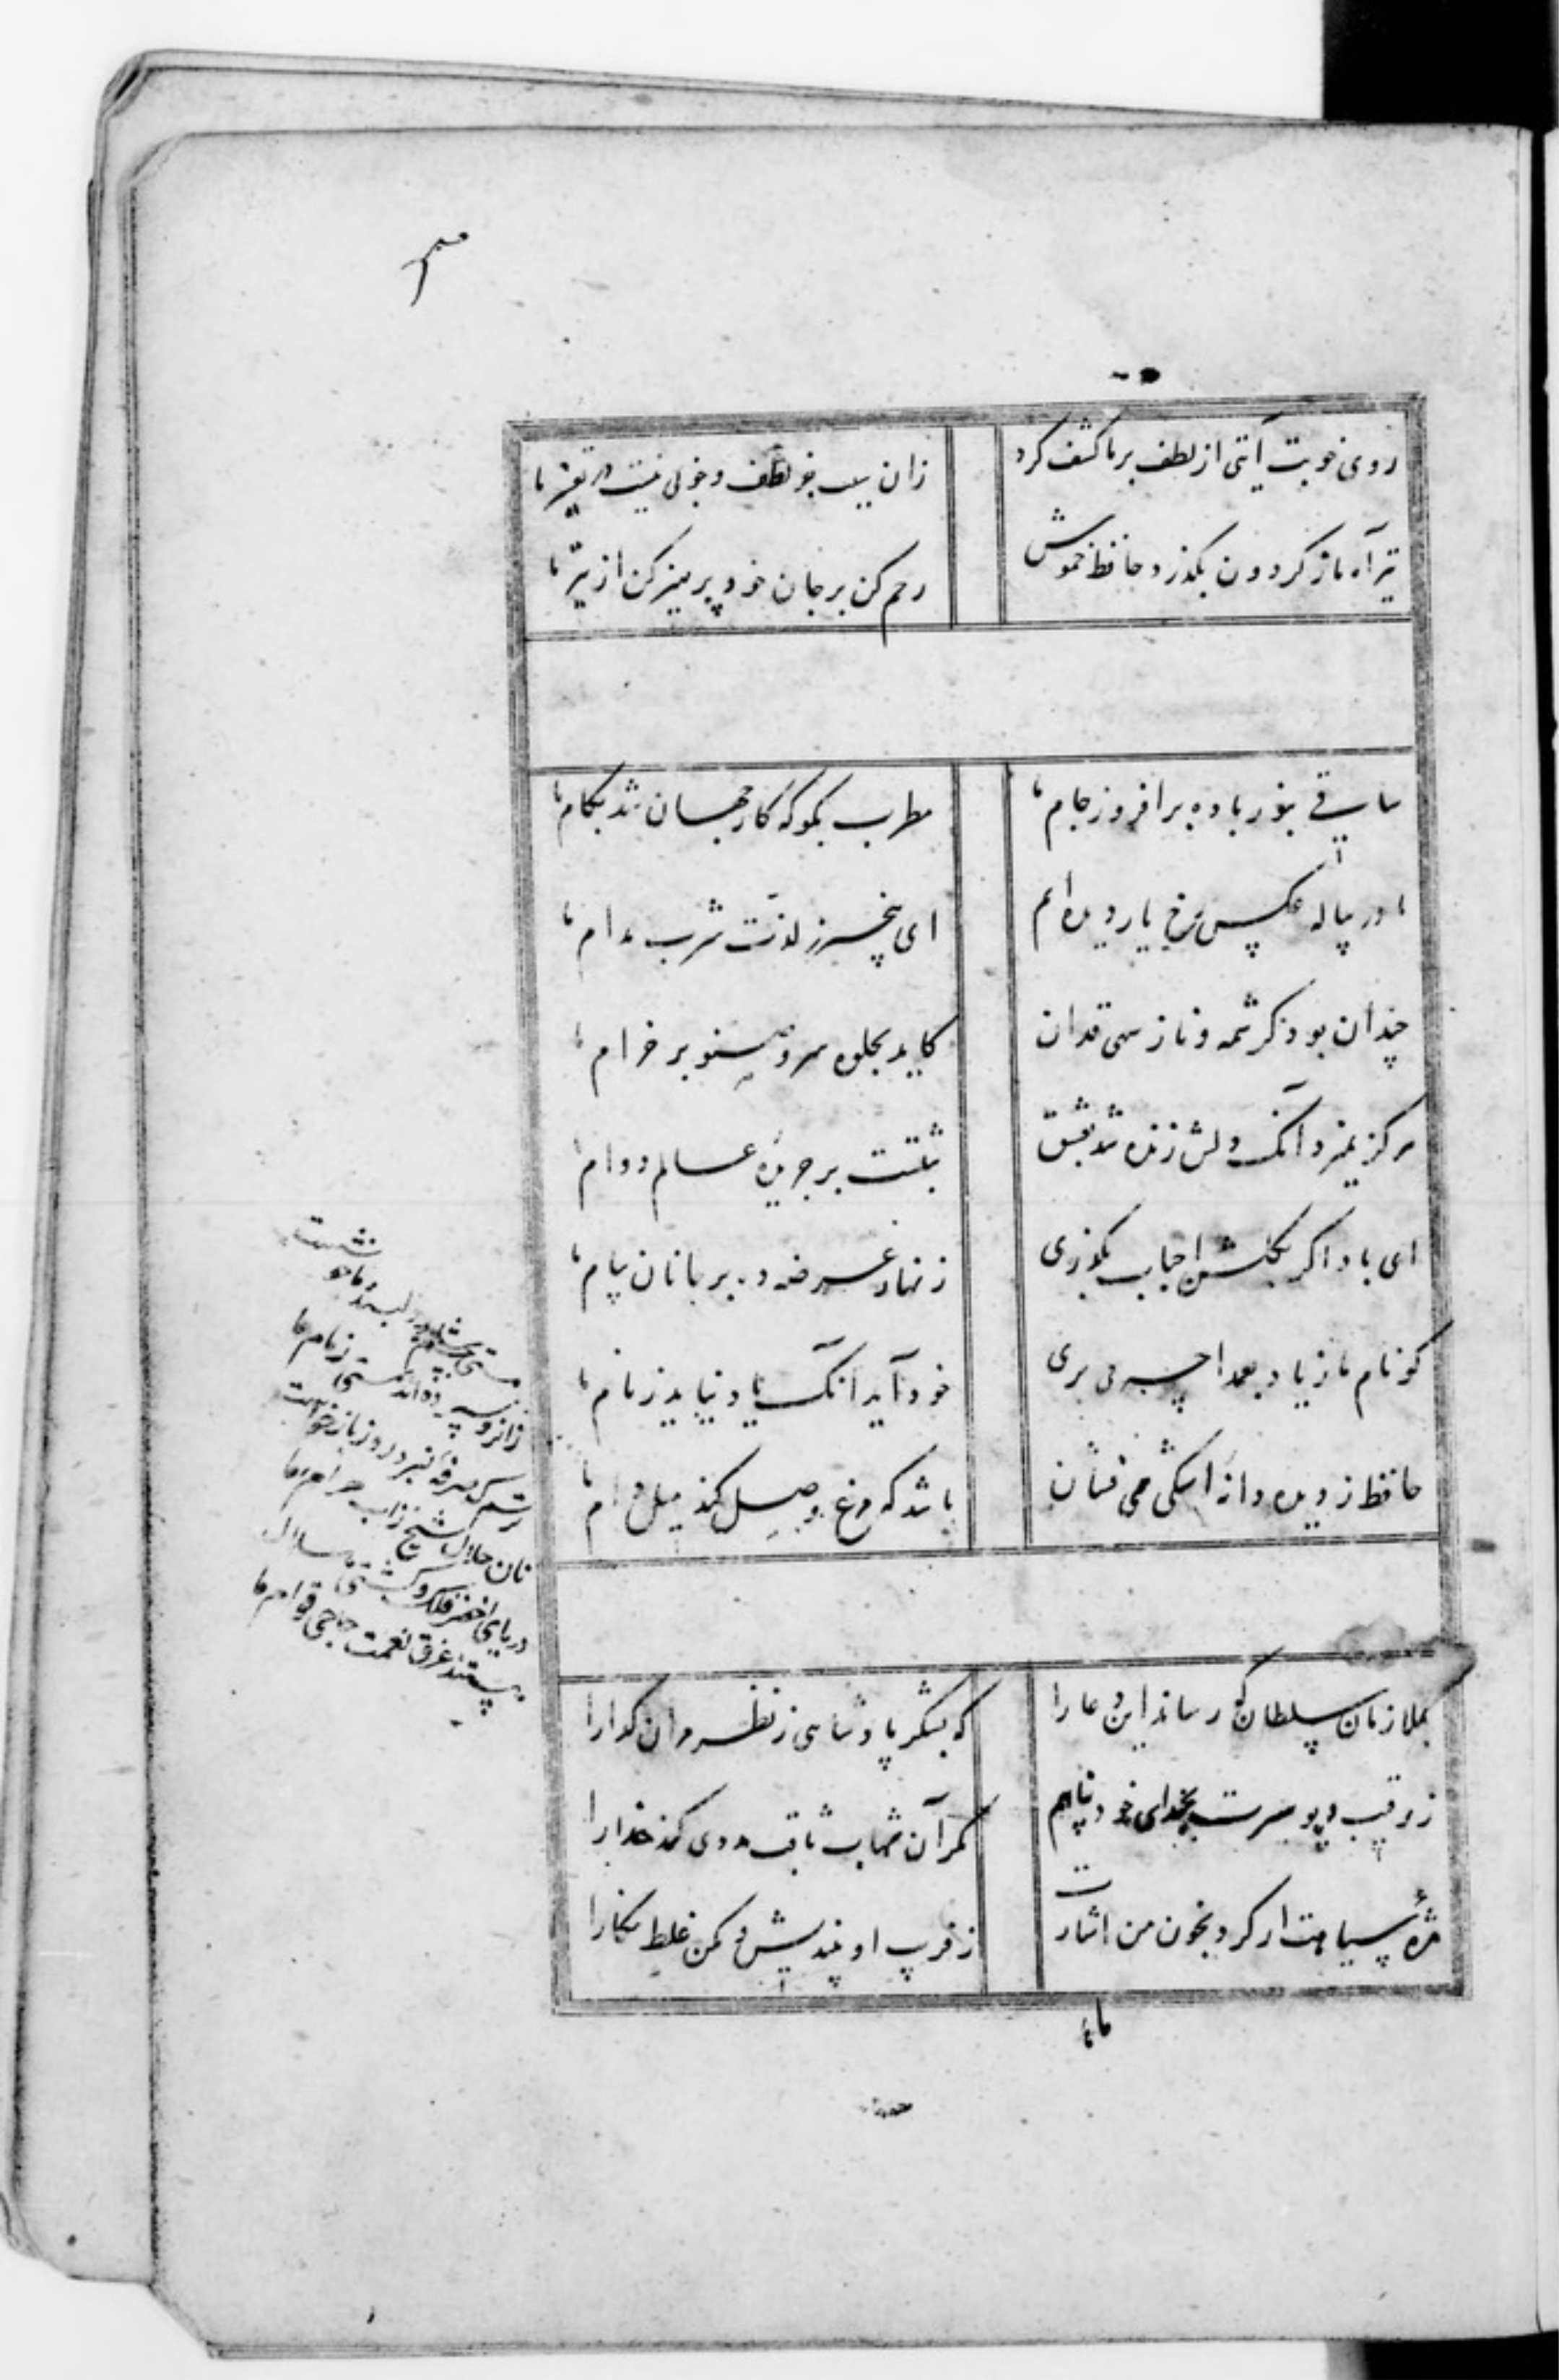 روی خوبت آیتی از لطف بر ما کشف کرد
زان سبب جز لطف و خوبی نیست در تفسیر ما
تیر آه ما ز کردون بکذرد حافظ خموش
رحم کن بر جان خود پرهیز کن از تیر ما
ساقی بنور باده برافروز جام ما
مطرب بکو که کار جهان شد بکام ما
ما در پیاله عکس رخ یار دیده ایم
ای بیخبر ز لذت شرب مدام ما
چندان بود کرشمه و ناز سهی قدان
کاید بجلوه سرو صنوبر خرام ما
هرکز نمیرد آنکه دلش زنده شد بعشق
ثبتست بر جریده عالم دوام ما
ای باد اکر بکلشن احباب بکذری
زنهار عرضه ده بر جانان پیام ما
کو نام ما ز یاد بعمدا چه می بری
خود آید آنکه یاد نیاید ز نام ما
حافظ ز دیده دانه اشکی می فشان
باشد که مرغ وصل کند میل دام ما
مستی بچشم شاهد دلبند ما خوشست
زانرو سپرده اند بمستی زمام ما
ترسم که صرفه نبرد روز بازخواست
نان حلال شیخ ز آب حرام ما
دریای اخضر فلک و کشتی هلال
هستند غرق نعمت حاجی قوام ما
بملازمان سلطان که رساند این دعا را
که بشکر پادشاهی ز نظر مران کدا را
ز رقیب دیو سیرت بخدای خود پناهم
مکر آن شهاب ثاقب مددی کند خدا را
مژه سیاهت ار کرد بخون من اشارت
ز فریب او بیندیش و مکن غلط نکارا